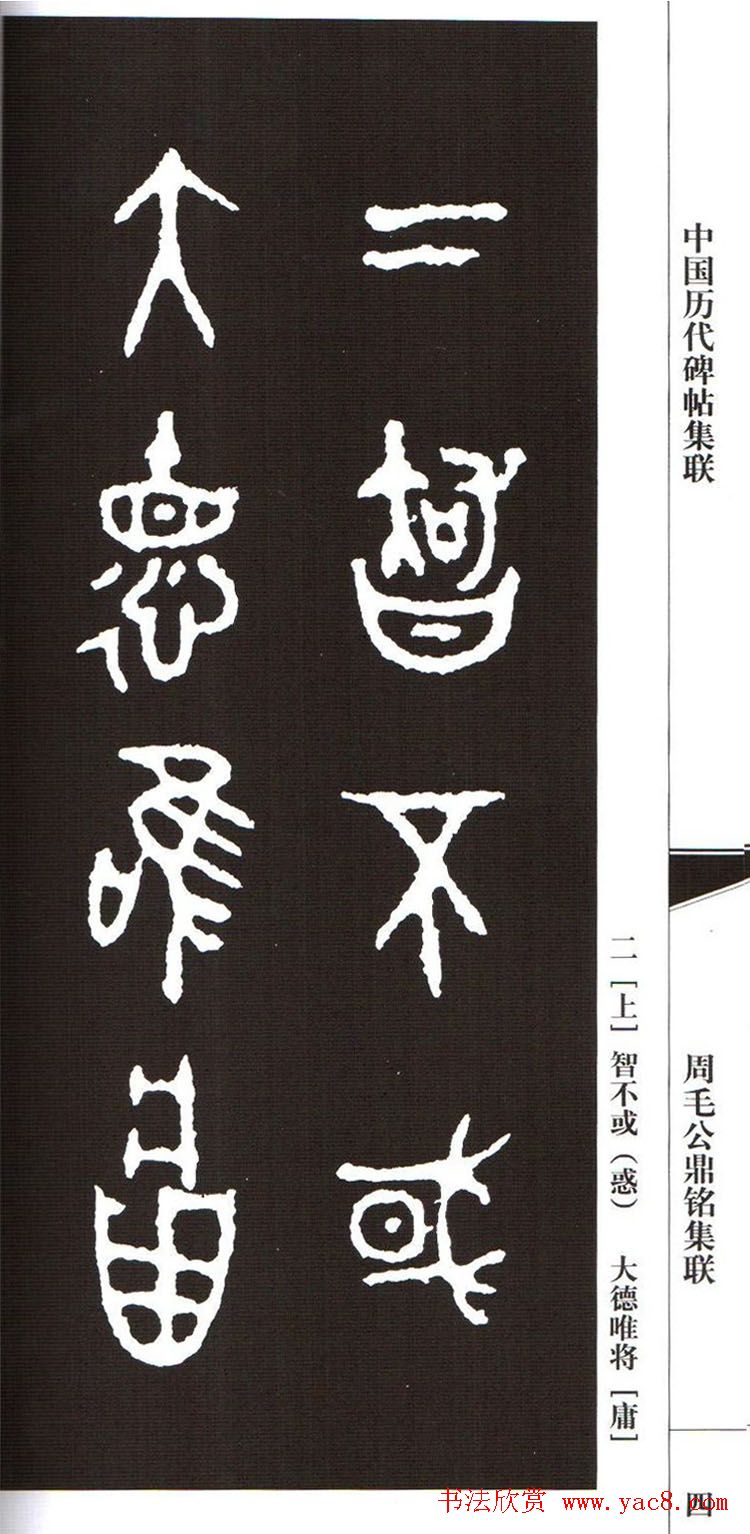 中国历代碑帖集联
周毛公鼎铭集联
四
二[上]智不或(惑) 大德唯将[庸]
二智不或
大德唯庸
书法欣赏 www.yac8.com